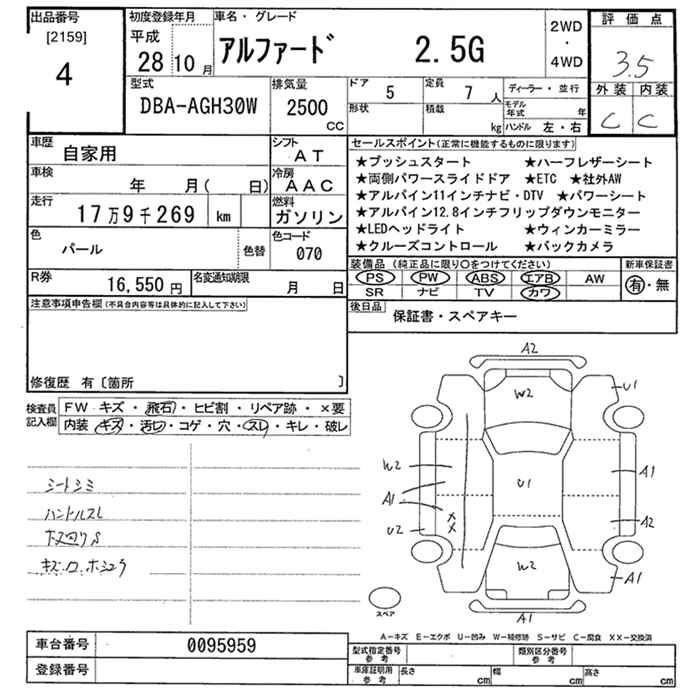 出品番号
[2159]
4
初度登録年月
平成
28年10月
車名・グレード
アルファード 2.5G
2WD
・
4WD
評価点
3.5
外装 内装
C C
型式
DBA-AGH30W
排気量
2500
CC
ドア
5
定員
7人
形状
積載
kg
ディーラー・並行
モデル年式 年
ハンドル 左・右
車歴
自家用
シフト
AT
車検
年 月( 日)
冷房
AAC
走行
17万9千269 km
燃料
ガソリン
色
パール
色替
色コード
070
R券
16,550円
名変通知期限
月 日
セールスポイント(正常に機能するものに限ります)
★プッシュスタート ★ハーフレザーシート
★両側パワースライドドア ★ETC ★社外AW
★アルパイン11インチナビ・DTV ★パワーシート
★アルパイン12.8インチフリップダウンモニター
★LEDヘッドライト ★ウィンカーミラー
★クルーズコントロール ★バックカメラ
装備品(純正品に限り○をつけてください)
新車保証書
PS PW ABS エアB AW
SR ナビ TV カワ
有・無
後日品
保証書・スペアキー
注意事項申告欄(不具合内容等は具体的に記入して下さい)
修復歴 有〔箇所 〕
検査員記入欄
FW キズ・飛石・ヒビ割・リペア跡・×要
内装 キズ・汚レ・コゲ・穴・スレ・キレ・破レ
シートシミ
ハンドルスレ
A2
W2
U1
W2
A1
U2
U1
××
A1
A2
W2
A1
A1
スペア
A-キズ E-エクボ U-凹み W-補修跡 S-サビ C-腐食 XX-交換済
車台番号
0095959
登録番号
型式指定番号
参考
類別区分番号
参考
車庫証明用
参考
長さ cm 幅 cm 高さ cm